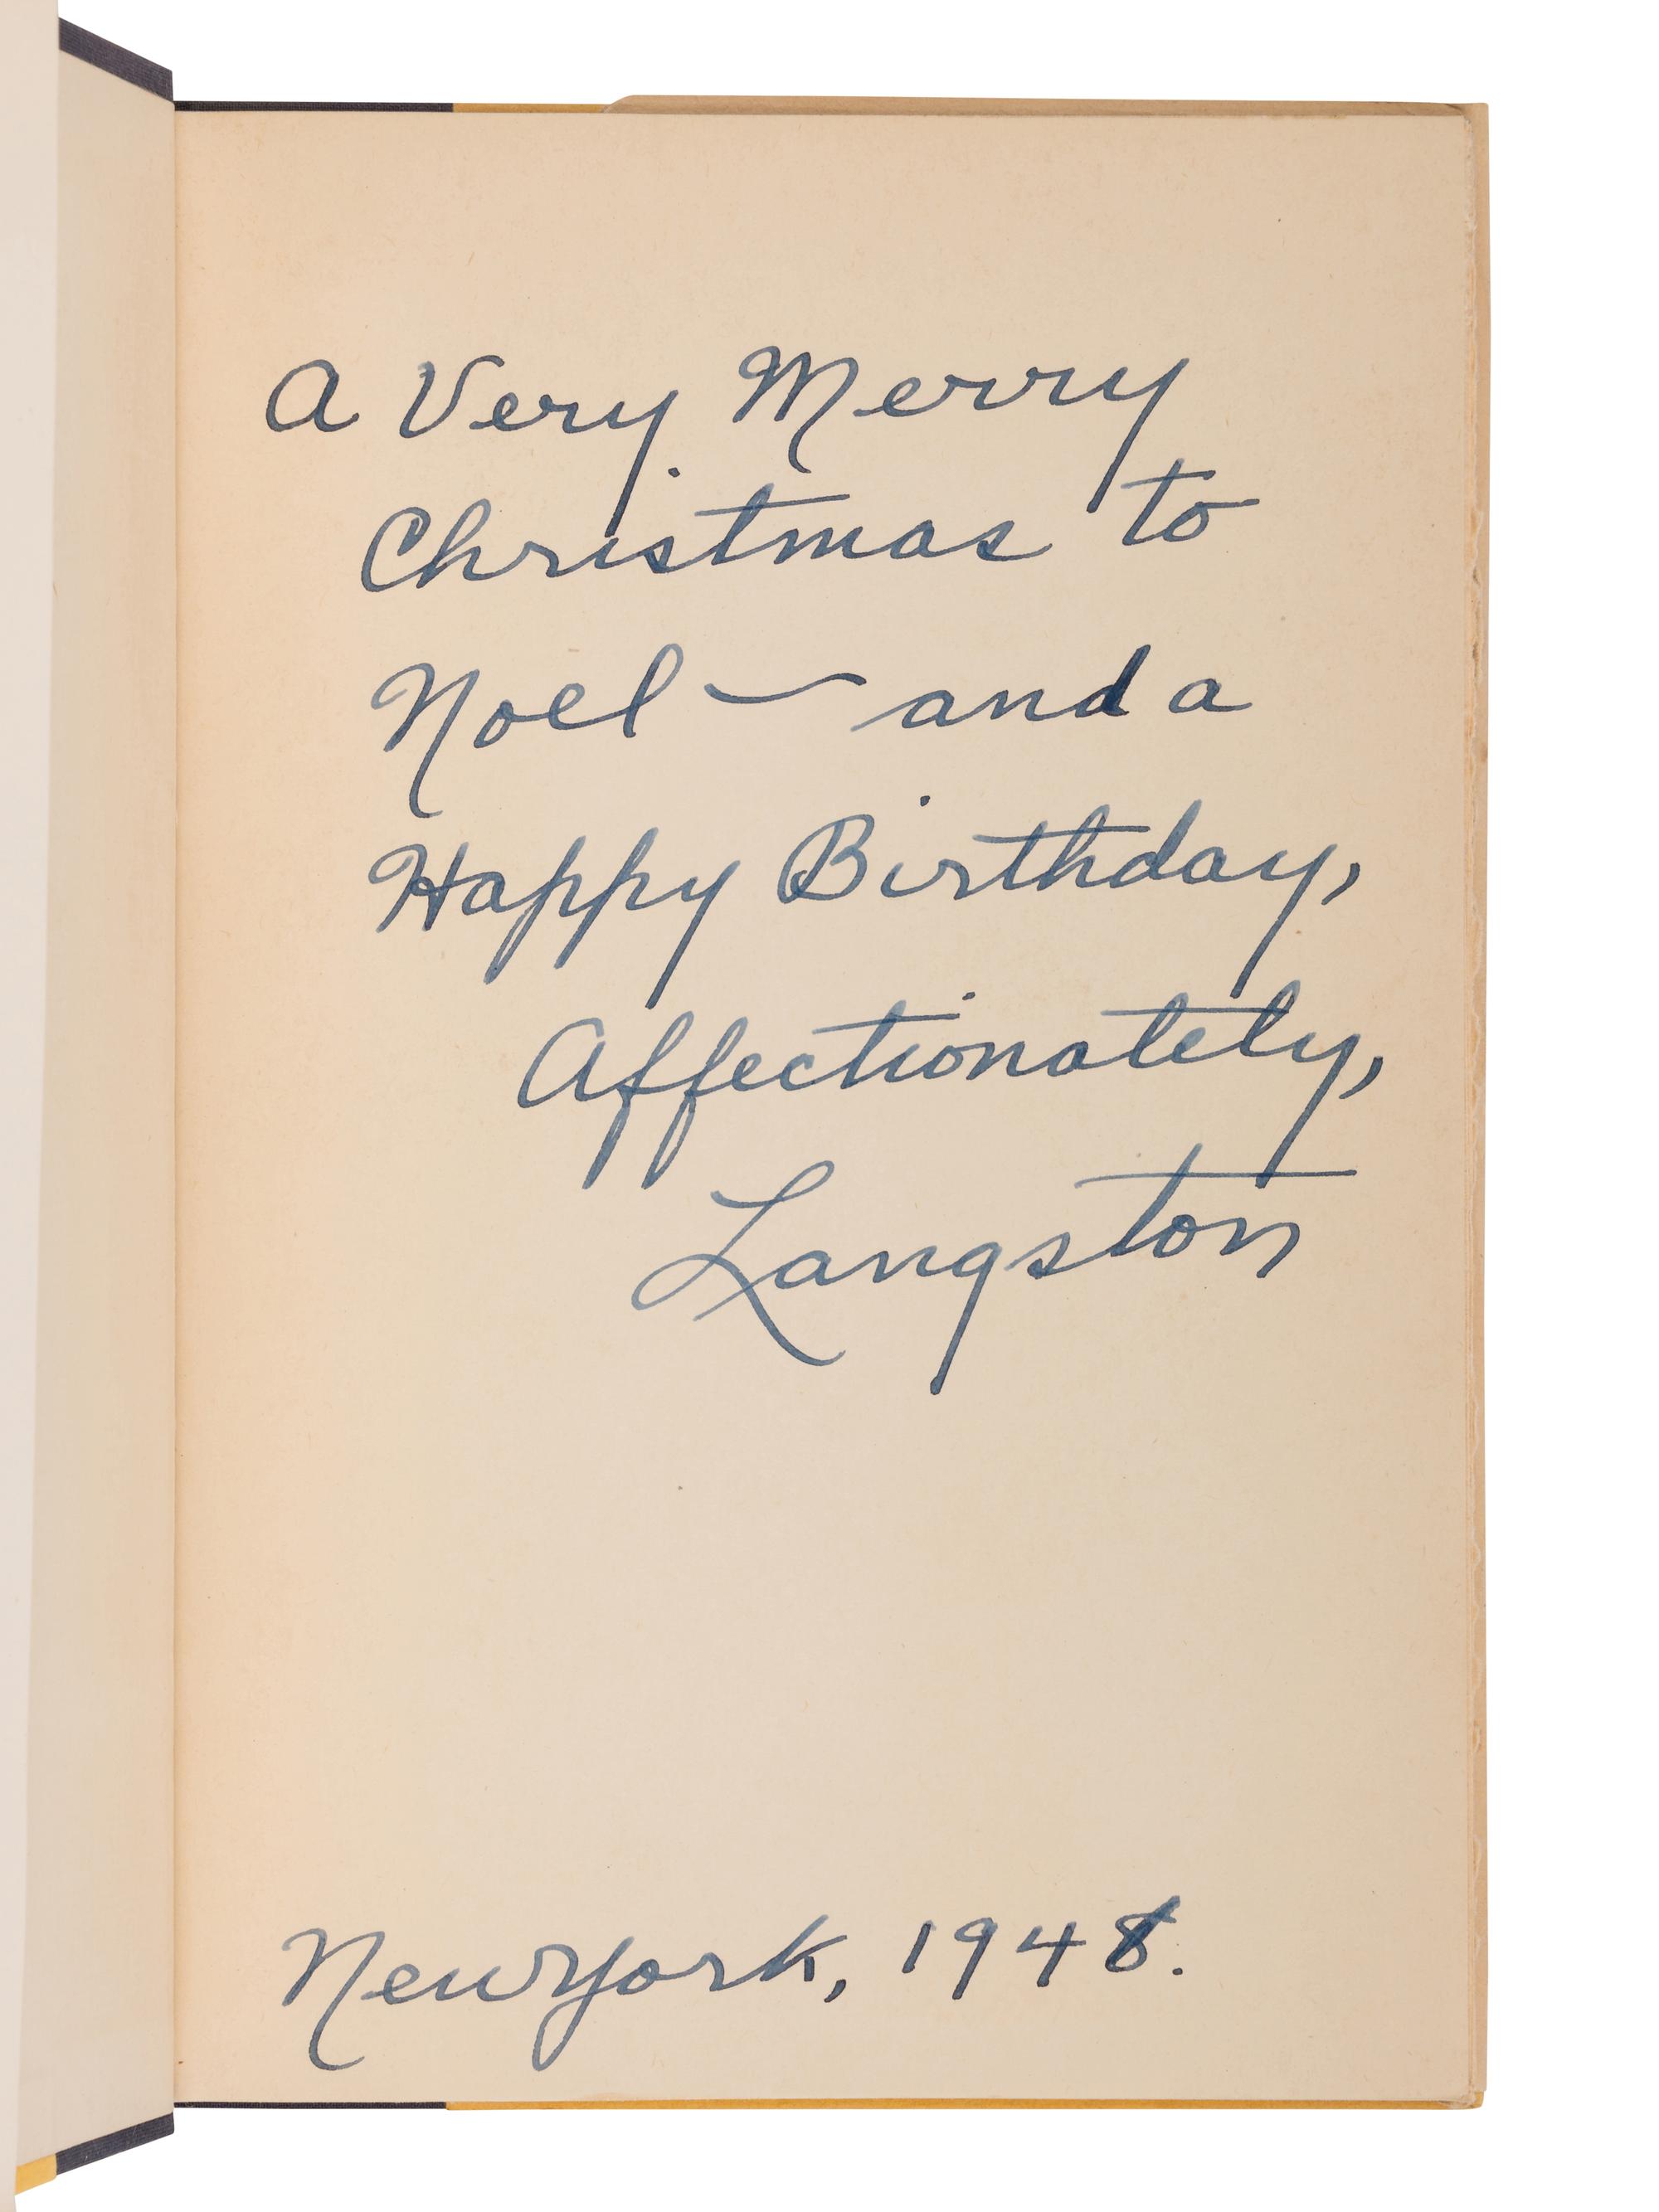 A Very Merry
Christmas to
Noel — and a
Happy Birthday,
Affectionately,
Langston
New York, 1948.